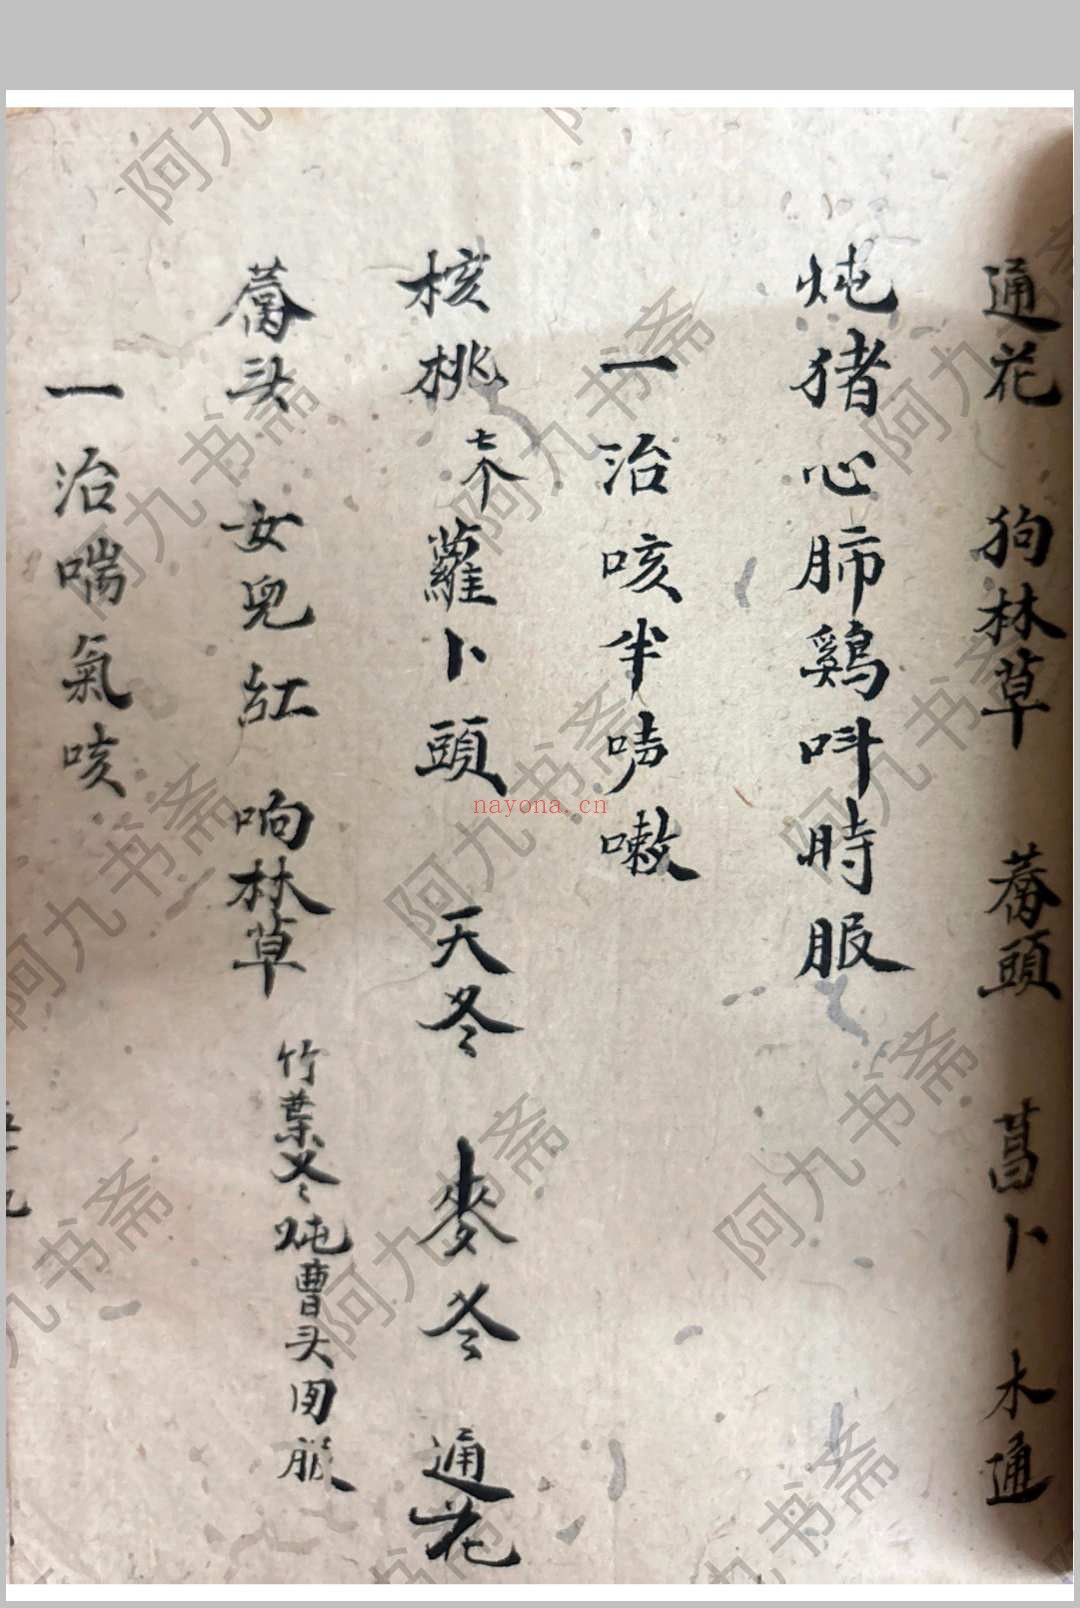 通花 狗林草 蕎頭 菖卜 木通
炖猪心肺鷄呌時服
一治咳半哮嗽
核桃七个蘿卜頭 天冬 麥冬 通花
蕎头 女皃紅 响林草 竹葉冬炖曹头肉服
一治喘氣咳
nayona.cn
阿九书斋